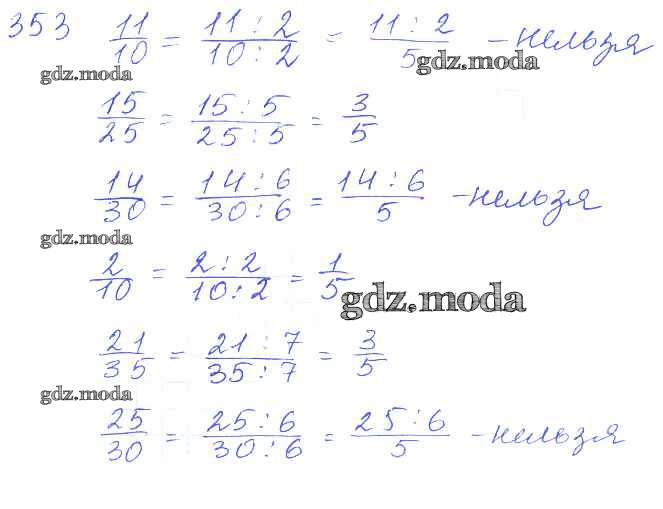 353 11/10 = 11 : 2/10 : 2 = 11 : 2/5 - нельзя
gdz.moda gdz.moda
15/25 = 15 : 5/25 : 5 = 3/5
14/30 = 14 : 6/30 : 6 = 14 : 6/5 - нельзя
gdz.moda
2/10 = 2 : 2/10 : 2 = 1/5
gdz.moda
21/35 = 21 : 7/35 : 7 = 3/5
gdz.moda
25/30 = 25 : 6/30 : 6 = 25 : 6/5 - нельзя